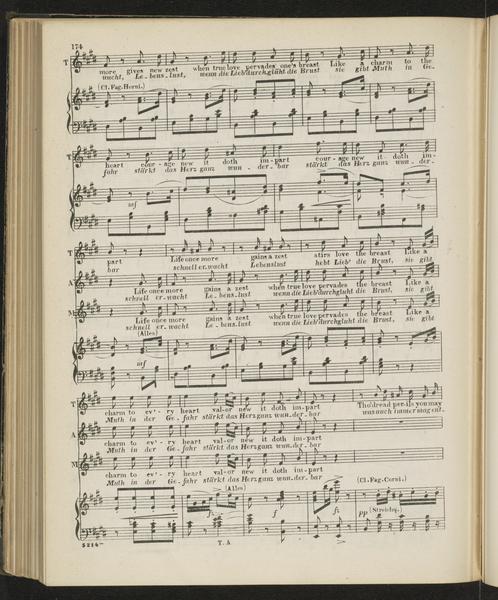 174
T
more gives new zest when true love pervades one's breast Like a charm to the
wacht, Le-bens-lust, wenn die Lieb' durchglüht die Brust sie gibt Muth in Ge-
(Cl. Fag. Horni.)
T
heart cour-age new it doth im-part cour-age new it doth im-
fahr stärkt das Herz ganz wun-der-bar stärkt das Herz ganz wun-der-
mf
T
part Life once more gains a zest stirs love the breast Like a
bar schnell er-wacht Lebenslust hebt Lieb' die Brust, sie gibt
A
Life once more gains a zest when true love pervades the breast Like a
schnell er-wacht Le-bens-lust wenn die Lieb' durchglüht die Brust, sie gibt
M
Life once more gains a zest when true love pervades the breast Like a
schnell er-wacht Le-bens-lust wenn die Lieb' durchglüht die Brust, sie gibt
(Alles)
mf
T
charm to ev'-ry heart val-or new it doth im-part Tho' dread per-ils you may
Muth in der Ge-fahr stärkt das Herz ganz wun-der-bar was auch immer mag ent-
A
charm to ev'-ry heart val-or new it doth im-part
Muth in der Ge-fahr stärkt das Herz ganz wun-der-bar
M
charm to ev'-ry heart val-or new it doth im-part
Muth in der Ge-fahr stärkt das Herz ganz wun-der-bar
(Alles) (Cl. Fag. Corni.)
f f pp (Streichq.)
5214 T. A